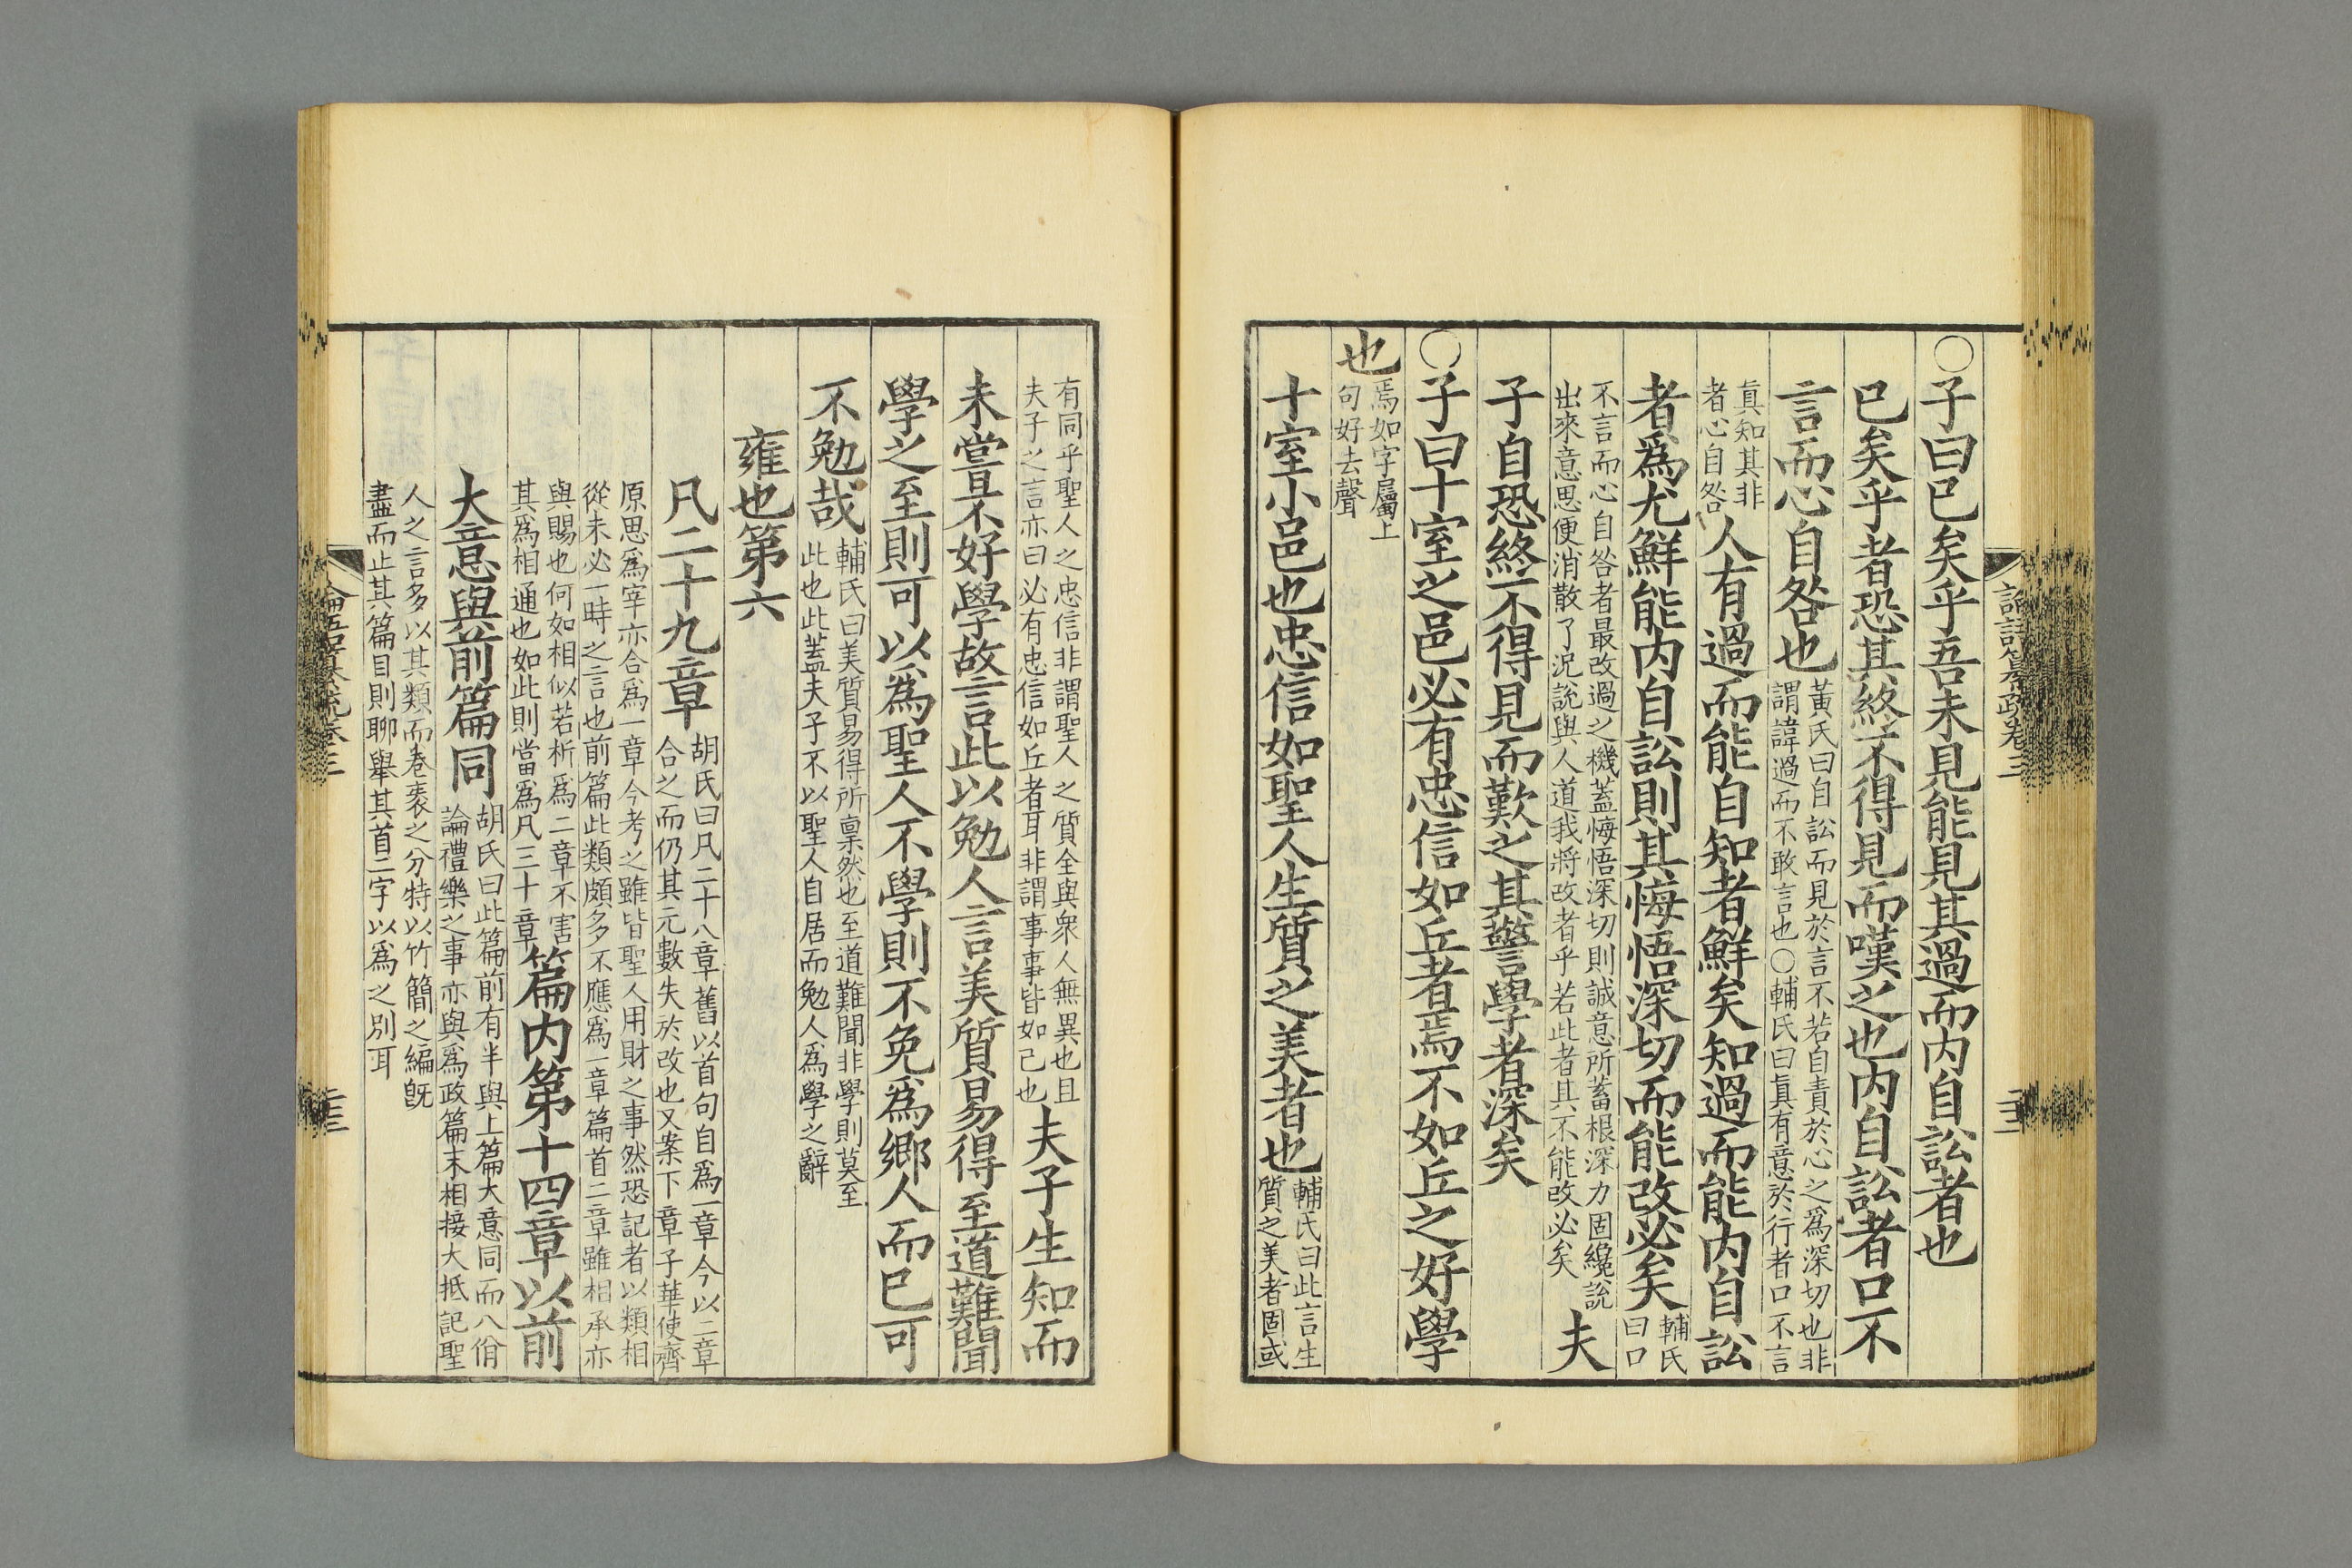 論語纂疏卷三
○子曰已矣乎吾未見能見其過而内自訟者也
已矣乎者恐其終不得見而嘆之也内自訟者口不
言而心自咎也黃氏曰自訟而見於言不若自責於心之爲深切也非
謂諱過而不敢言也○輔氏曰眞有意於行者口不言
眞知其非
者心自咎人有過而能自知者鮮矣知過而能内自訟
者爲尤鮮能内自訟則其悔悟深切而能改必矣輔氏
曰口
不言而心自咎者最改過之機蓋悔悟深切則誠意所蓄根深力固纔說
出來意思便消散了況說與人道我將改者乎若此者其不能改必矣夫
子自恐終不得見而歎之其警學者深矣
○子曰十室之邑必有忠信如丘者焉不如丘之好學
也焉如字屬上
句好去聲
十室小邑也忠信如聖人生質之美者也輔氏曰此言生
質之美者固或
有同乎聖人之忠信非謂聖人之質全與衆人無異也且
夫子之言亦曰必有忠信如丘者耳非謂事事皆如己也夫子生知而
未嘗不好學故言此以勉人言美質易得至道難聞
學之至則可以爲聖人不學則不免爲鄉人而已可
不勉哉輔氏曰美質易得所禀然也至道難聞非學則莫至
此也此蓋夫子不以聖人自居而勉人爲學之辭
雍也第六
凡二十九章胡氏曰凡二十八章舊以首句自爲一章今以二章
合之而仍其元數失於改也又案下章子華使齊
原思爲宰亦合爲一章今考之雖皆聖人用財之事然恐記者以類相
從未必一時之言也前篇此類頗多不應爲一章篇首二章雖相承亦
與賜也何如相似若析爲二章不害
其爲相通也如此則當爲凡三十章篇内第十四章以前
大意與前篇同胡氏曰此篇前有半與上篇大意同而八佾
論禮樂之事亦與爲政篇末相接大抵記聖
人之言多以其類而卷袠之分特以竹簡之編旣
盡而止其篇目則聊舉其首二字以爲之別耳
論語纂疏卷三